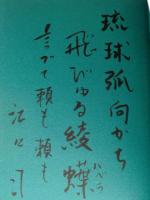 琉球弧向かち
飛びゅる綾蝶
ハベラ
言づて頼も頼も